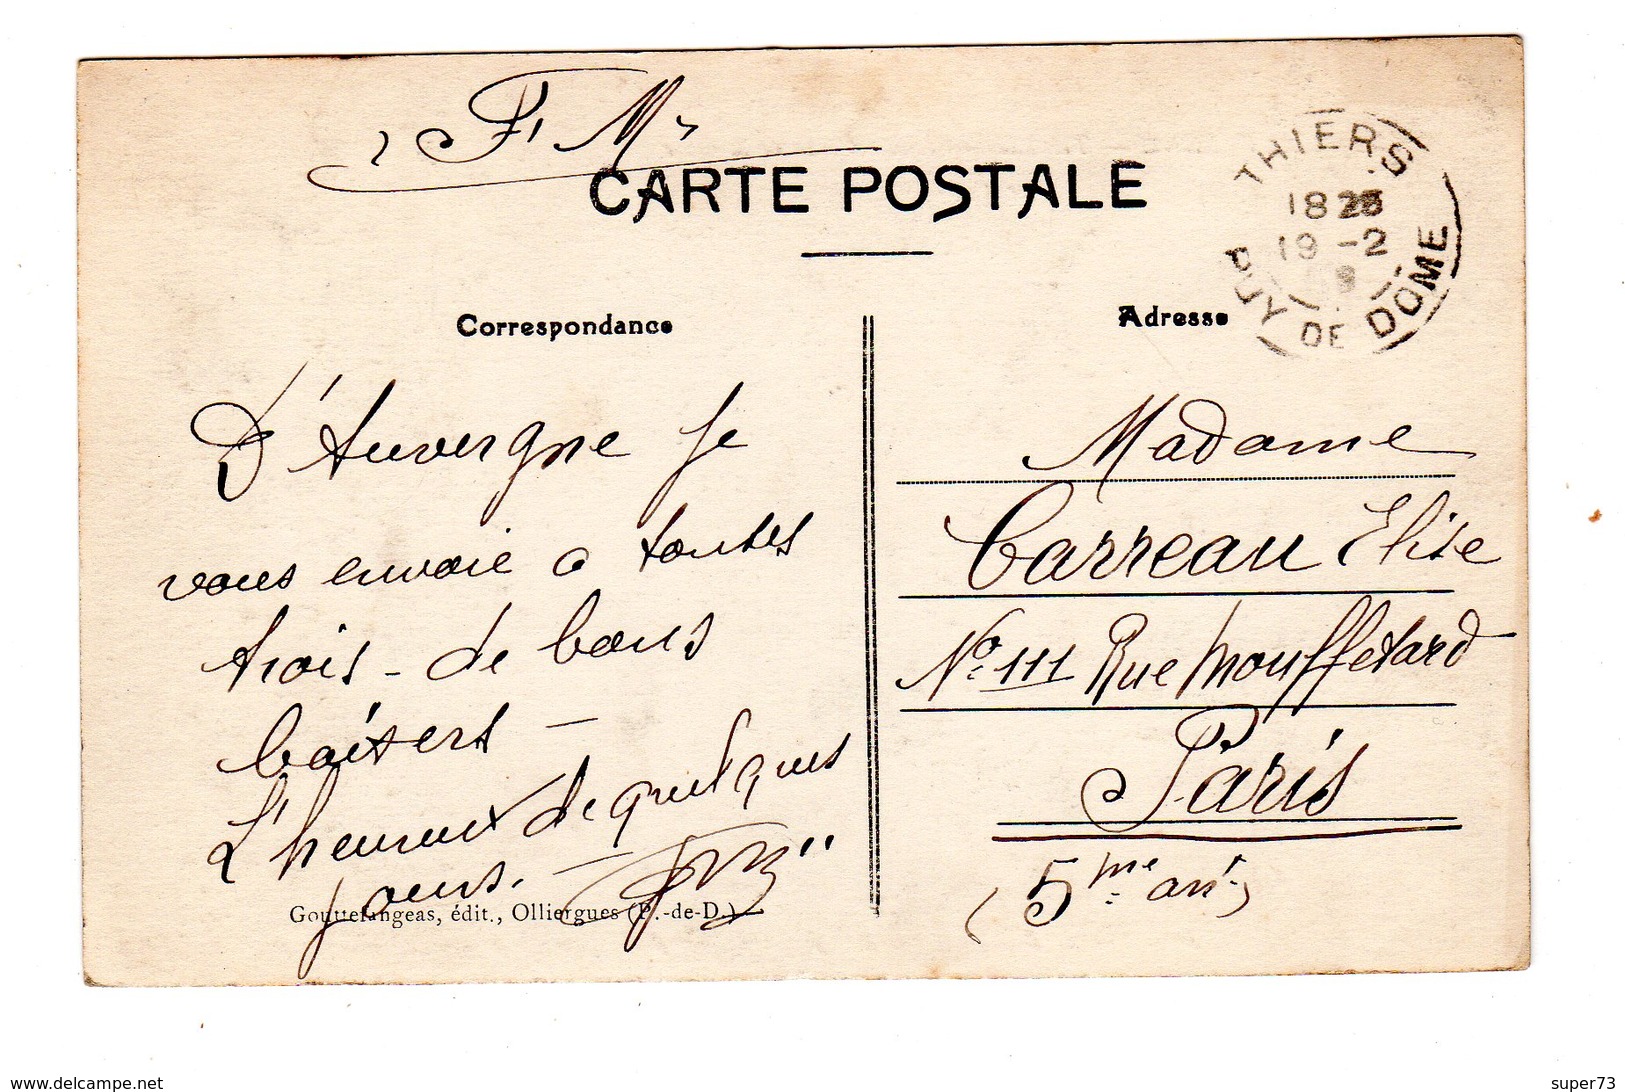 F. M.
CARTE POSTALE
THIERS
18 25
19 -2
PUY DE DOME
Correspondance
Adresse
D'Auvergne je
vous envoie a toutes
trois - de bons
baisers -
L'heureux de quelques
jours. -
Gouttefangeas, édit., Olliergues (P.-de-D.)
Madame
Carreau Elise
No 111 Rue Mouffetard
Paris
(5me arrt)
www.delcampe.net
super73